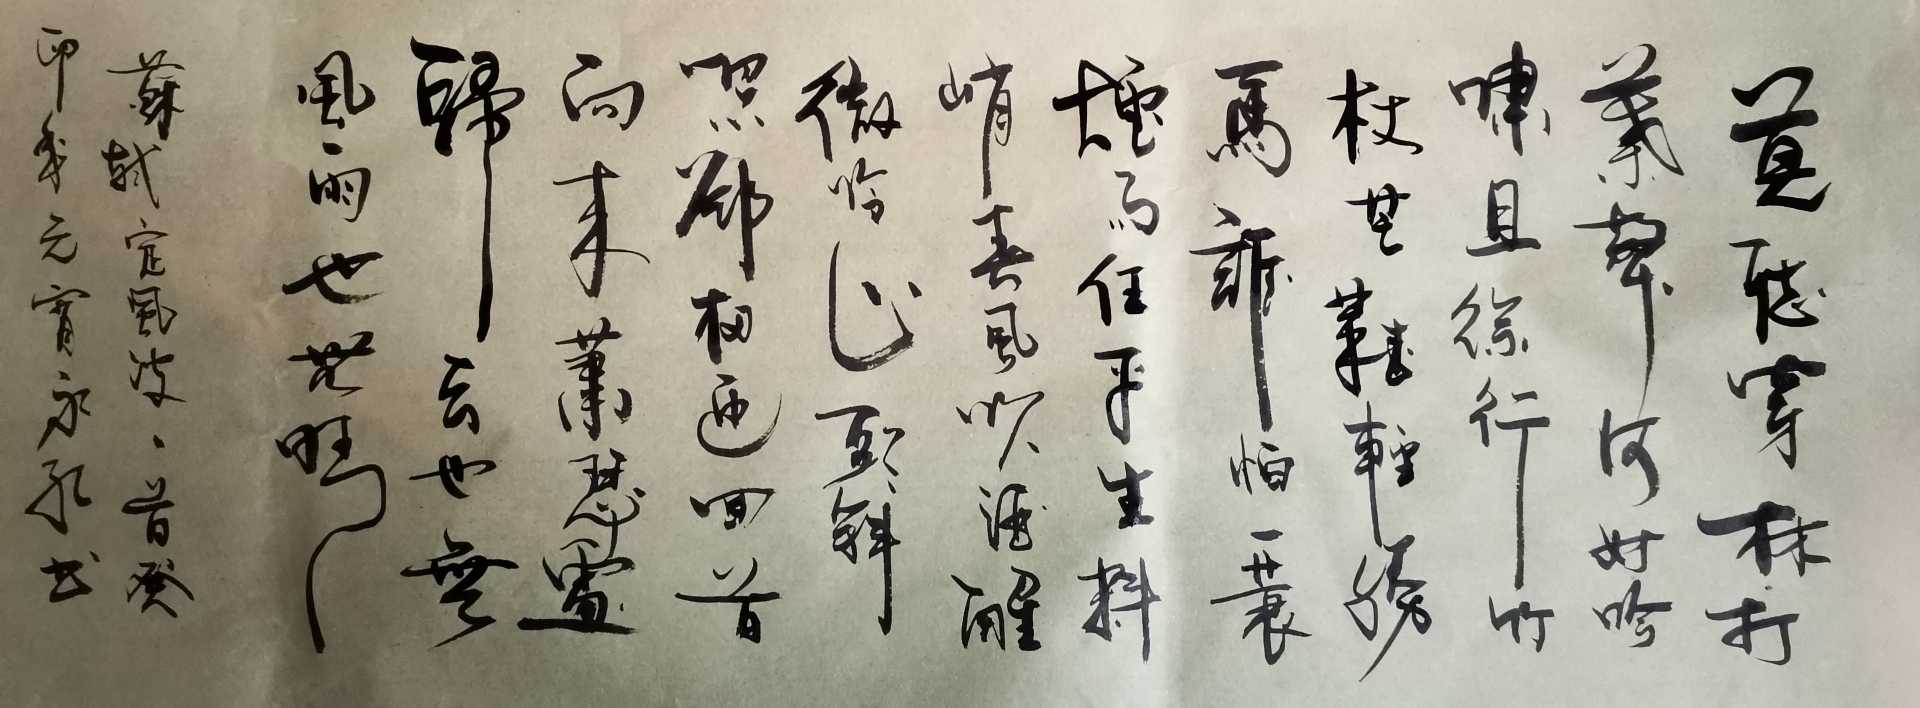 莫聽穿林打
葉聲何妨吟
嘯且徐行竹
杖芒鞋輕勝
馬誰怕一蓑
煙雨任平生料
峭春風吹酒醒
微冷山頭斜
照卻相迎回首
向來蕭瑟處
歸去也無
風雨也無晴
蘇軾定風波一首癸
卯年元宵永书